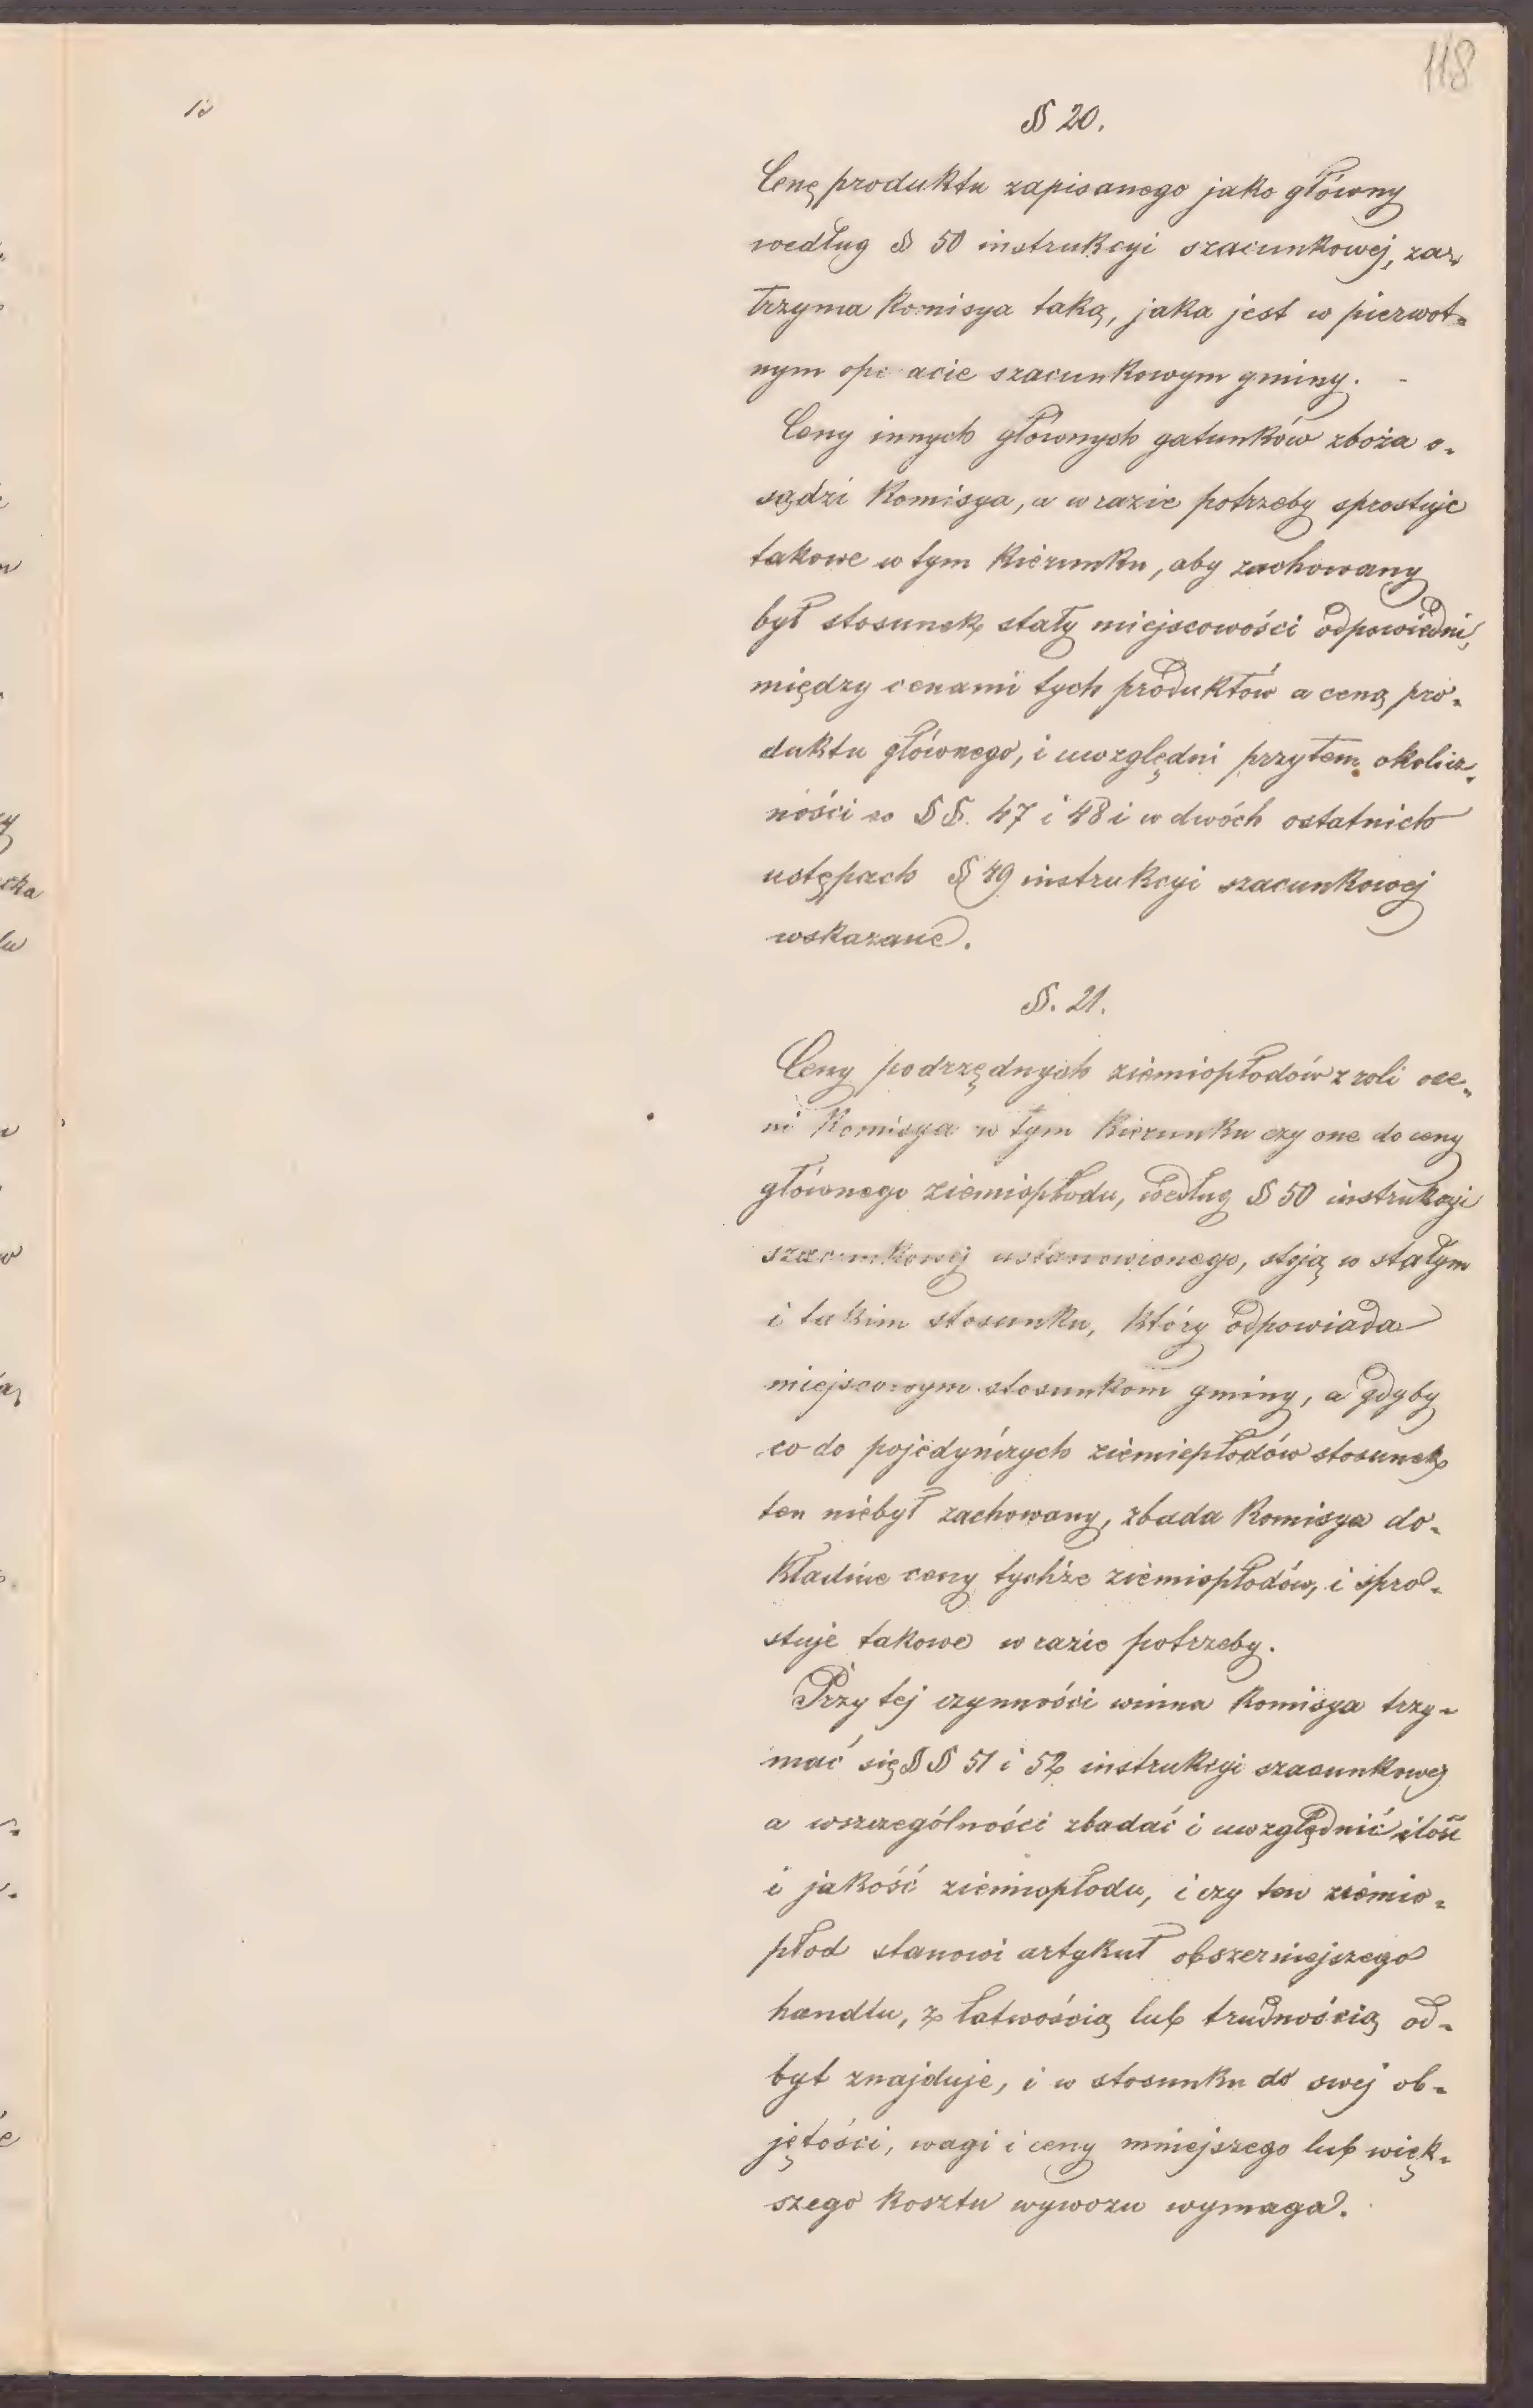 118
§ 20.
Cenę produktu zapisanego jako główny
według § 50 instrukcyi szacunkowej, za-
trzyma Komisya taką, jaka jest w pierwot-
nym ope acie szacunkowym gminy.
Ceny innych głównych gatunków zboża o-
sądzi Komisya, a w razie potrzeby sprostuje
takowe w tym Kierunku, aby zachowany
był stosunek stały miejscowości odpowiedni,
między cenami tych produktów a ceną pro-
duktu głównego, i uwzględni przytem okolicz-
ności w §§. 47 i 48 i w dwóch ostatnich
ustępach § 49 instrukcyi szacunkowej
wskazane.
§. 21.
Ceny podrzędnych ziemiopłodów z roli oce-
ni Komisya w tym Kierunku czy one do ceny
głównego ziemiopłodu, według § 50 instrukcyi
szacunkowej ustanowionego, stoją w stałym
i takim stosunku, który odpowiada
miejscowym stosunkom gminy, a gdyby
co do pojedyńczych ziemiopłodów stosunek
ten niebył zachowany, zbada Komisya do-
kładnie ceny tychże ziemiopłodów, i spro-
stuje takowe w razie potrzeby.
Przy tej czynności winna Komisya trzy-
mać się §§ 51 i 52 instrukcyi szacunkowej
a wszczególności zbadać i uwzględnić ilość
i jakość ziemiopłodu, i czy ten ziemio-
płod stanowi artykuł obszerniejszego
handlu, z łatwością lub trudnością od-
byt znajduje, i w stosunku do swej ob-
jętości, wagi i ceny mniejszego lub więk-
szego Kosztu wywozu wymaga.